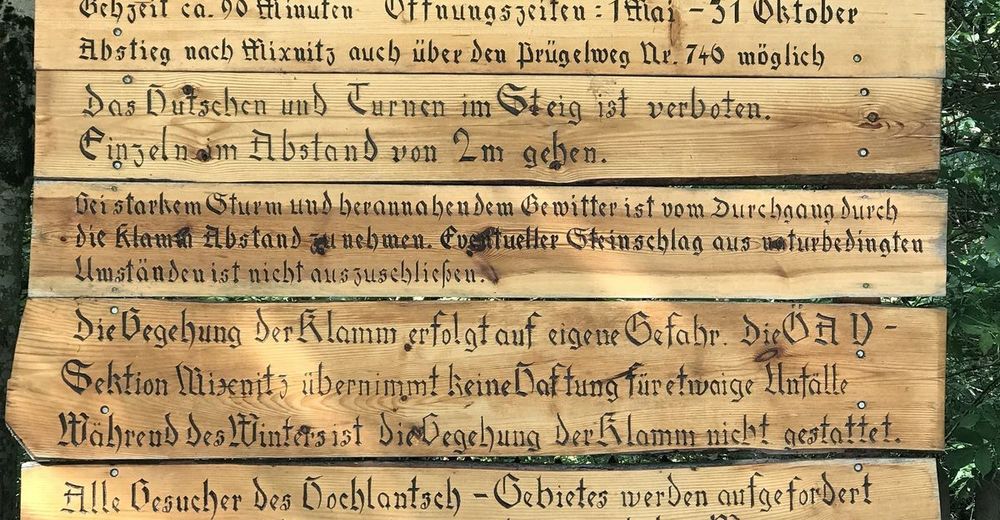 Gehzeit ca. 90 Minuten Öffnungszeiten : 1 Mai – 31 Oktober
Abstieg nach Mixnitz auch über den Prügelweg Nr. 746 möglich
Das Hutschen und Turnen im Steig ist verboten.
Einzeln im Abstand von 2m gehen.
Bei starkem Sturm und herannahendem Gewitter ist vom Durchgang durch
die Klamm Abstand zu nehmen. Eventueller Steinschlag aus naturbedingten
Umständen ist nicht auszuschließen.
Die Begehung der Klamm erfolgt auf eigene Gefahr. Die ÖAV –
Sektion Mixnitz übernimmt keine Haftung für etwaige Unfälle
Während des Winters ist die Begehung der Klamm nicht gestattet.
Alle Besucher des Hochlantsch – Gebietes werden aufgefordert